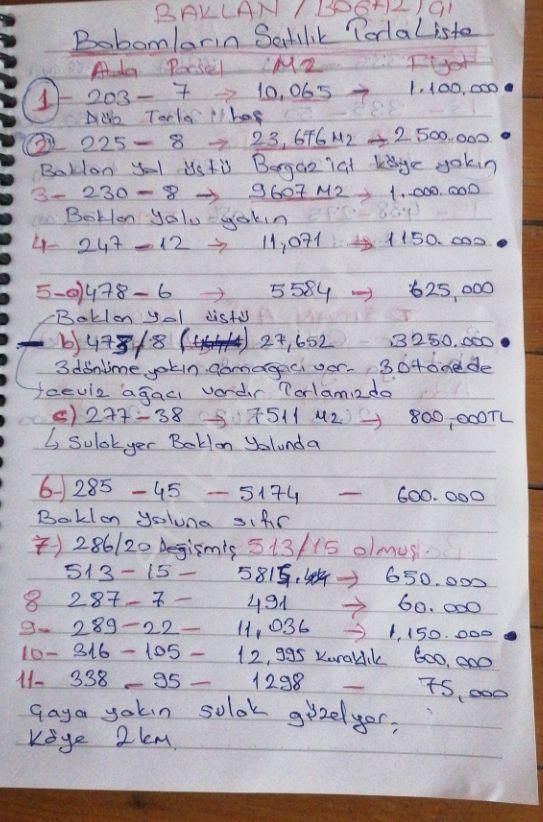 BAKLAN / BOĞAZİÇİ
Babamların Satılık Tarla Liste
Ada Parsel M2 Fiyat
1- 203 - 7 → 10,065 → 1.100.000 •
Düb Tarla boş
2- 225 - 8 → 23,676 M2 → 2 500.000 •
Baklan yol üstü Bogaz içi köye yakın
3- 230 - 8 → 9607 M2 → 1.000.000
Baklan yolu yakın
4- 247 - 12 → 11,071 → 1150.000 •
5-a) 478 - 6 → 5584 → 625,000
Baklan yol üstü
b) 478/8 27,652 3250.000 •
3 dönüme yakın çamağacı var. 30 tanede
ceviz ağacı vardır Tarlamızda
c) 277 - 38 → 7511 M2 → 800,000TL
↳ Sulak yer Baklan Yolunda
6-) 285 - 45 - 5174 - 600.000
Baklan yoluna sıfır
7-) 286/20 Değişmiş 513/15 olmuş
513 - 15 - 5815 → 650.000
8 287 - 7 - 491 → 60.000
9- 289 - 22 - 11,036 → 1,150.000 •
10- 316 - 105 - 12,995 Kuraklık 600,000
11- 338 - 95 - 1298 - 75,000
Çaya yakın sulak güzelyer,
Köye 2 km.